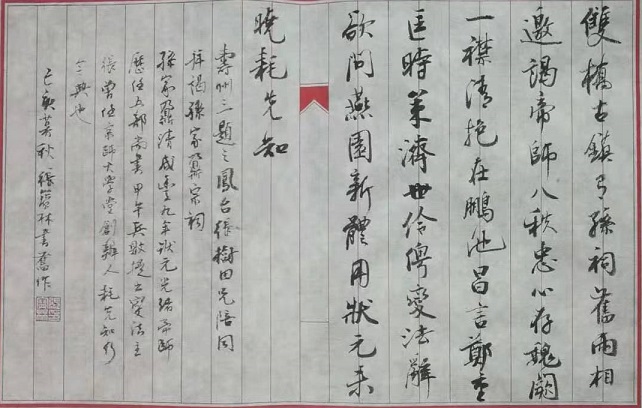 雙橋古鎮孫祠舊雨相
邀謁帝師八秩忠心存魏闕
一襟清抱在鵬池昌言鄭重
匡時策濟世伶俜變法辭
欲問燕園新體用狀元未
曉耗先知
壽州三題之鳳台張樹田兄陪同
拜謁孫家鼐宗祠
孫家鼐清咸豐九年狀元光緒帝師
歷任五部尚書甲午兵敗提出變法主
張曾任京師大學堂創辦人耗先知
典也
己亥暮秋張林書舊作